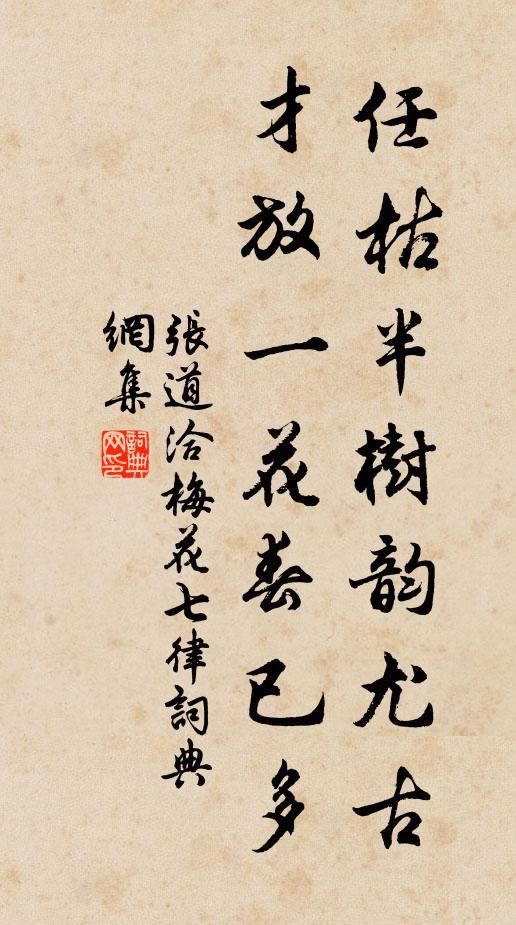 任枯半樹韵尤古
才放一花春已多
張道洽梅花七律詞典
網集
詞典
网印